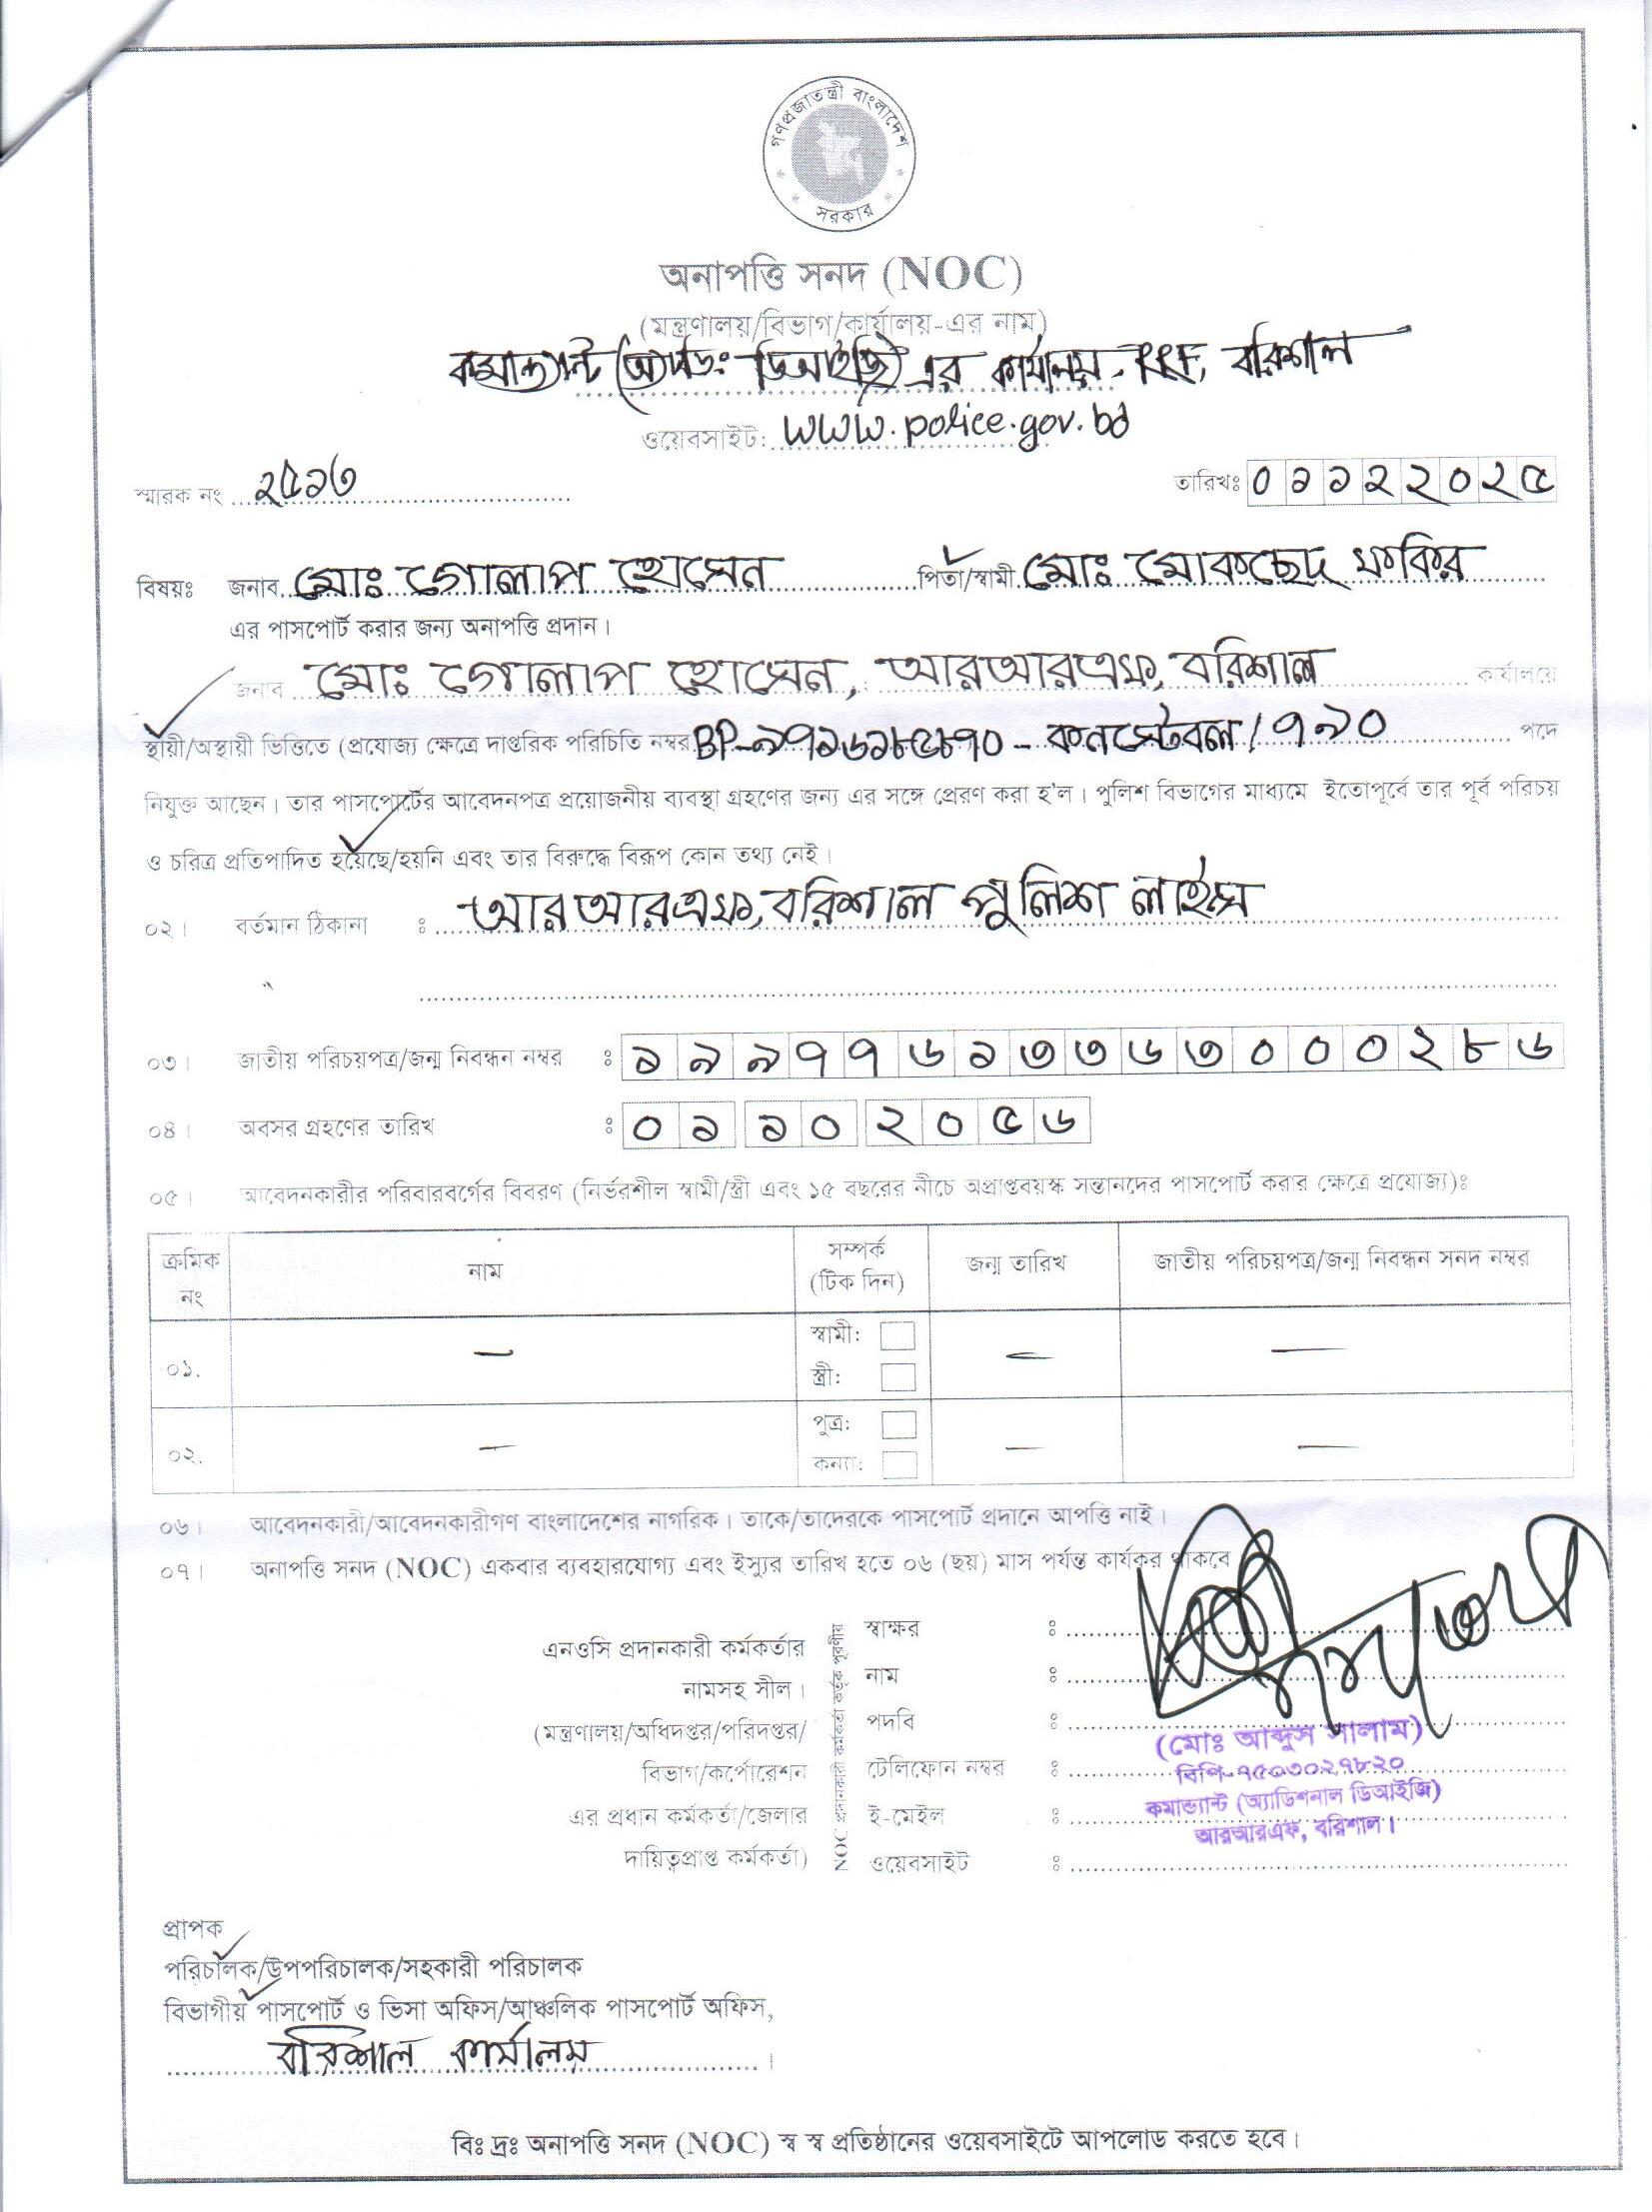 গণপ্রজাতন্ত্রী বাংলাদেশ
সরকার
অনাপত্তি সনদ (NOC)
(মন্ত্রণালয়/বিভাগ/কার্যালয়-এর নাম)
কমান্ড্যান্ট (অ্যাডিঃ ডিআইজি) এর কার্যালয়, RRF, বরিশাল
ওয়েবসাইট: www.police.gov.bd
স্মারক নং ২৫১৩ তারিখঃ ০১১২২০২৫
বিষয়ঃ জনাব মোঃ গোলাপ হোসেন পিতা/স্বামী মোঃ মোকছেদ ফকির
এর পাসপোর্ট করার জন্য অনাপত্তি প্রদান।
জনাব মোঃ গোলাপ হোসেন, আরআরএফ, বরিশাল কার্যালয়ে
স্থায়ী/অস্থায়ী ভিত্তিতে (প্রযোজ্য ক্ষেত্রে দাপ্তরিক পরিচিতি নম্বর BP-৯৭১৬১৮৫৮৭০ - কনস্টেবল/৭৯০ পদে
নিযুক্ত আছেন। তার পাসপোর্টের আবেদনপত্র প্রয়োজনীয় ব্যবস্থা গ্রহণের জন্য এর সঙ্গে প্রেরণ করা হ'ল। পুলিশ বিভাগের মাধ্যমে ইতোপূর্বে তার পূর্ব পরিচয়
ও চরিত্র প্রতিপাদিত হয়েছে/হয়নি এবং তার বিরুদ্ধে বিরূপ কোন তথ্য নেই।
০২। বর্তমান ঠিকানা ঃ আরআরএফ, বরিশাল পুলিশ লাইন্স
০৩। জাতীয় পরিচয়পত্র/জন্ম নিবন্ধন নম্বর ঃ ১৯৯৭৭৬১৩৩৬৩০০০২৮৬
০৪। অবসর গ্রহণের তারিখ ঃ ০১১০২০৫৬
০৫। আবেদনকারীর পরিবারবর্গের বিবরণ (নির্ভরশীল স্বামী/স্ত্রী এবং ১৫ বছরের নীচে অপ্রাপ্তবয়স্ক সন্তানদের পাসপোর্ট করার ক্ষেত্রে প্রযোজ্য)ঃ
ক্রমিক নং নাম সম্পর্ক (টিক দিন) জন্ম তারিখ জাতীয় পরিচয়পত্র/জন্ম নিবন্ধন সনদ নম্বর
০১. – স্বামী: – –
স্ত্রী:
০২. – পুত্র: – –
কন্যা:
০৬। আবেদনকারী/আবেদনকারীগণ বাংলাদেশের নাগরিক। তাকে/তাদেরকে পাসপোর্ট প্রদানে আপত্তি নাই।
০৭। অনাপত্তি সনদ (NOC) একবার ব্যবহারযোগ্য এবং ইস্যুর তারিখ হতে ০৬ (ছয়) মাস পর্যন্ত কার্যকর থাকবে
এনওসি প্রদানকারী কর্মকর্তার
নামসহ সীল।
(মন্ত্রণালয়/অধিদপ্তর/পরিদপ্তর/
বিভাগ/কর্পোরেশন
এর প্রধান কর্মকর্তা/জেলার
দায়িত্বপ্রাপ্ত কর্মকর্তা)
NOC প্রদানকারী কর্মকর্তা কর্তৃক পূরণীয়
স্বাক্ষর ঃ
নাম ঃ
পদবি ঃ
টেলিফোন নম্বর ঃ
ই-মেইল ঃ
ওয়েবসাইট ঃ
(মোঃ আব্দুস সালাম)
বিপি-৭৫০৩০২৭৮২০
কমান্ড্যান্ট (অ্যাডিশনাল ডিআইজি)
আরআরএফ, বরিশাল।
প্রাপক
পরিচালক/উপপরিচালক/সহকারী পরিচালক
বিভাগীয় পাসপোর্ট ও ভিসা অফিস/আঞ্চলিক পাসপোর্ট অফিস,
বরিশাল কার্যালয়।
বিঃ দ্রঃ অনাপত্তি সনদ (NOC) স্ব স্ব প্রতিষ্ঠানের ওয়েবসাইটে আপলোড করতে হবে।